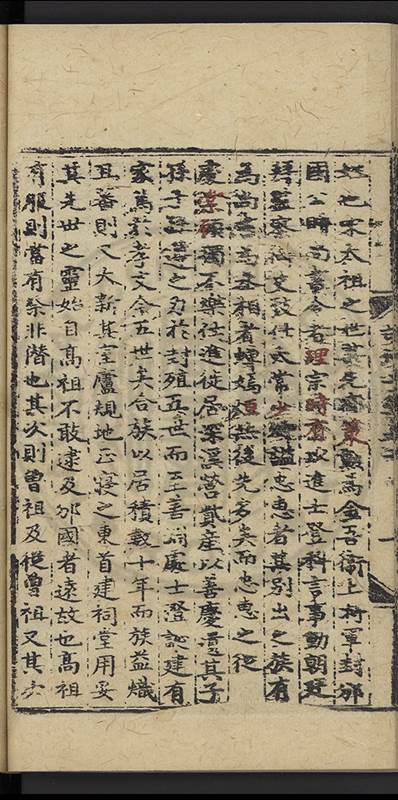 也宋太祖之世其先有策勲為金吾衛上将軍封邠
國公贈尚書令者理宗時有以進士登科言事動朝廷
拜監察御史致仕太常少卿謚忠惠者其別出之族有
為尚書為丞相者蟬嫣恒赫後先方矣而忠惠之從
慶顧獨不樂仕進徙居深溪營貲產以善慶遺其子
孫子之方於封殖五世而至善詞處士澄誕建有
家篤於孝文今五世矣合族以居積數十年而族益熾
且蕃則又大新其室廬規地正寢之東首建祠堂用妥
其先世之靈始自高祖不敢逮及邠國者遠故也高祖
有服則當有祭非僭也其次則曾祖及從曾祖又其次